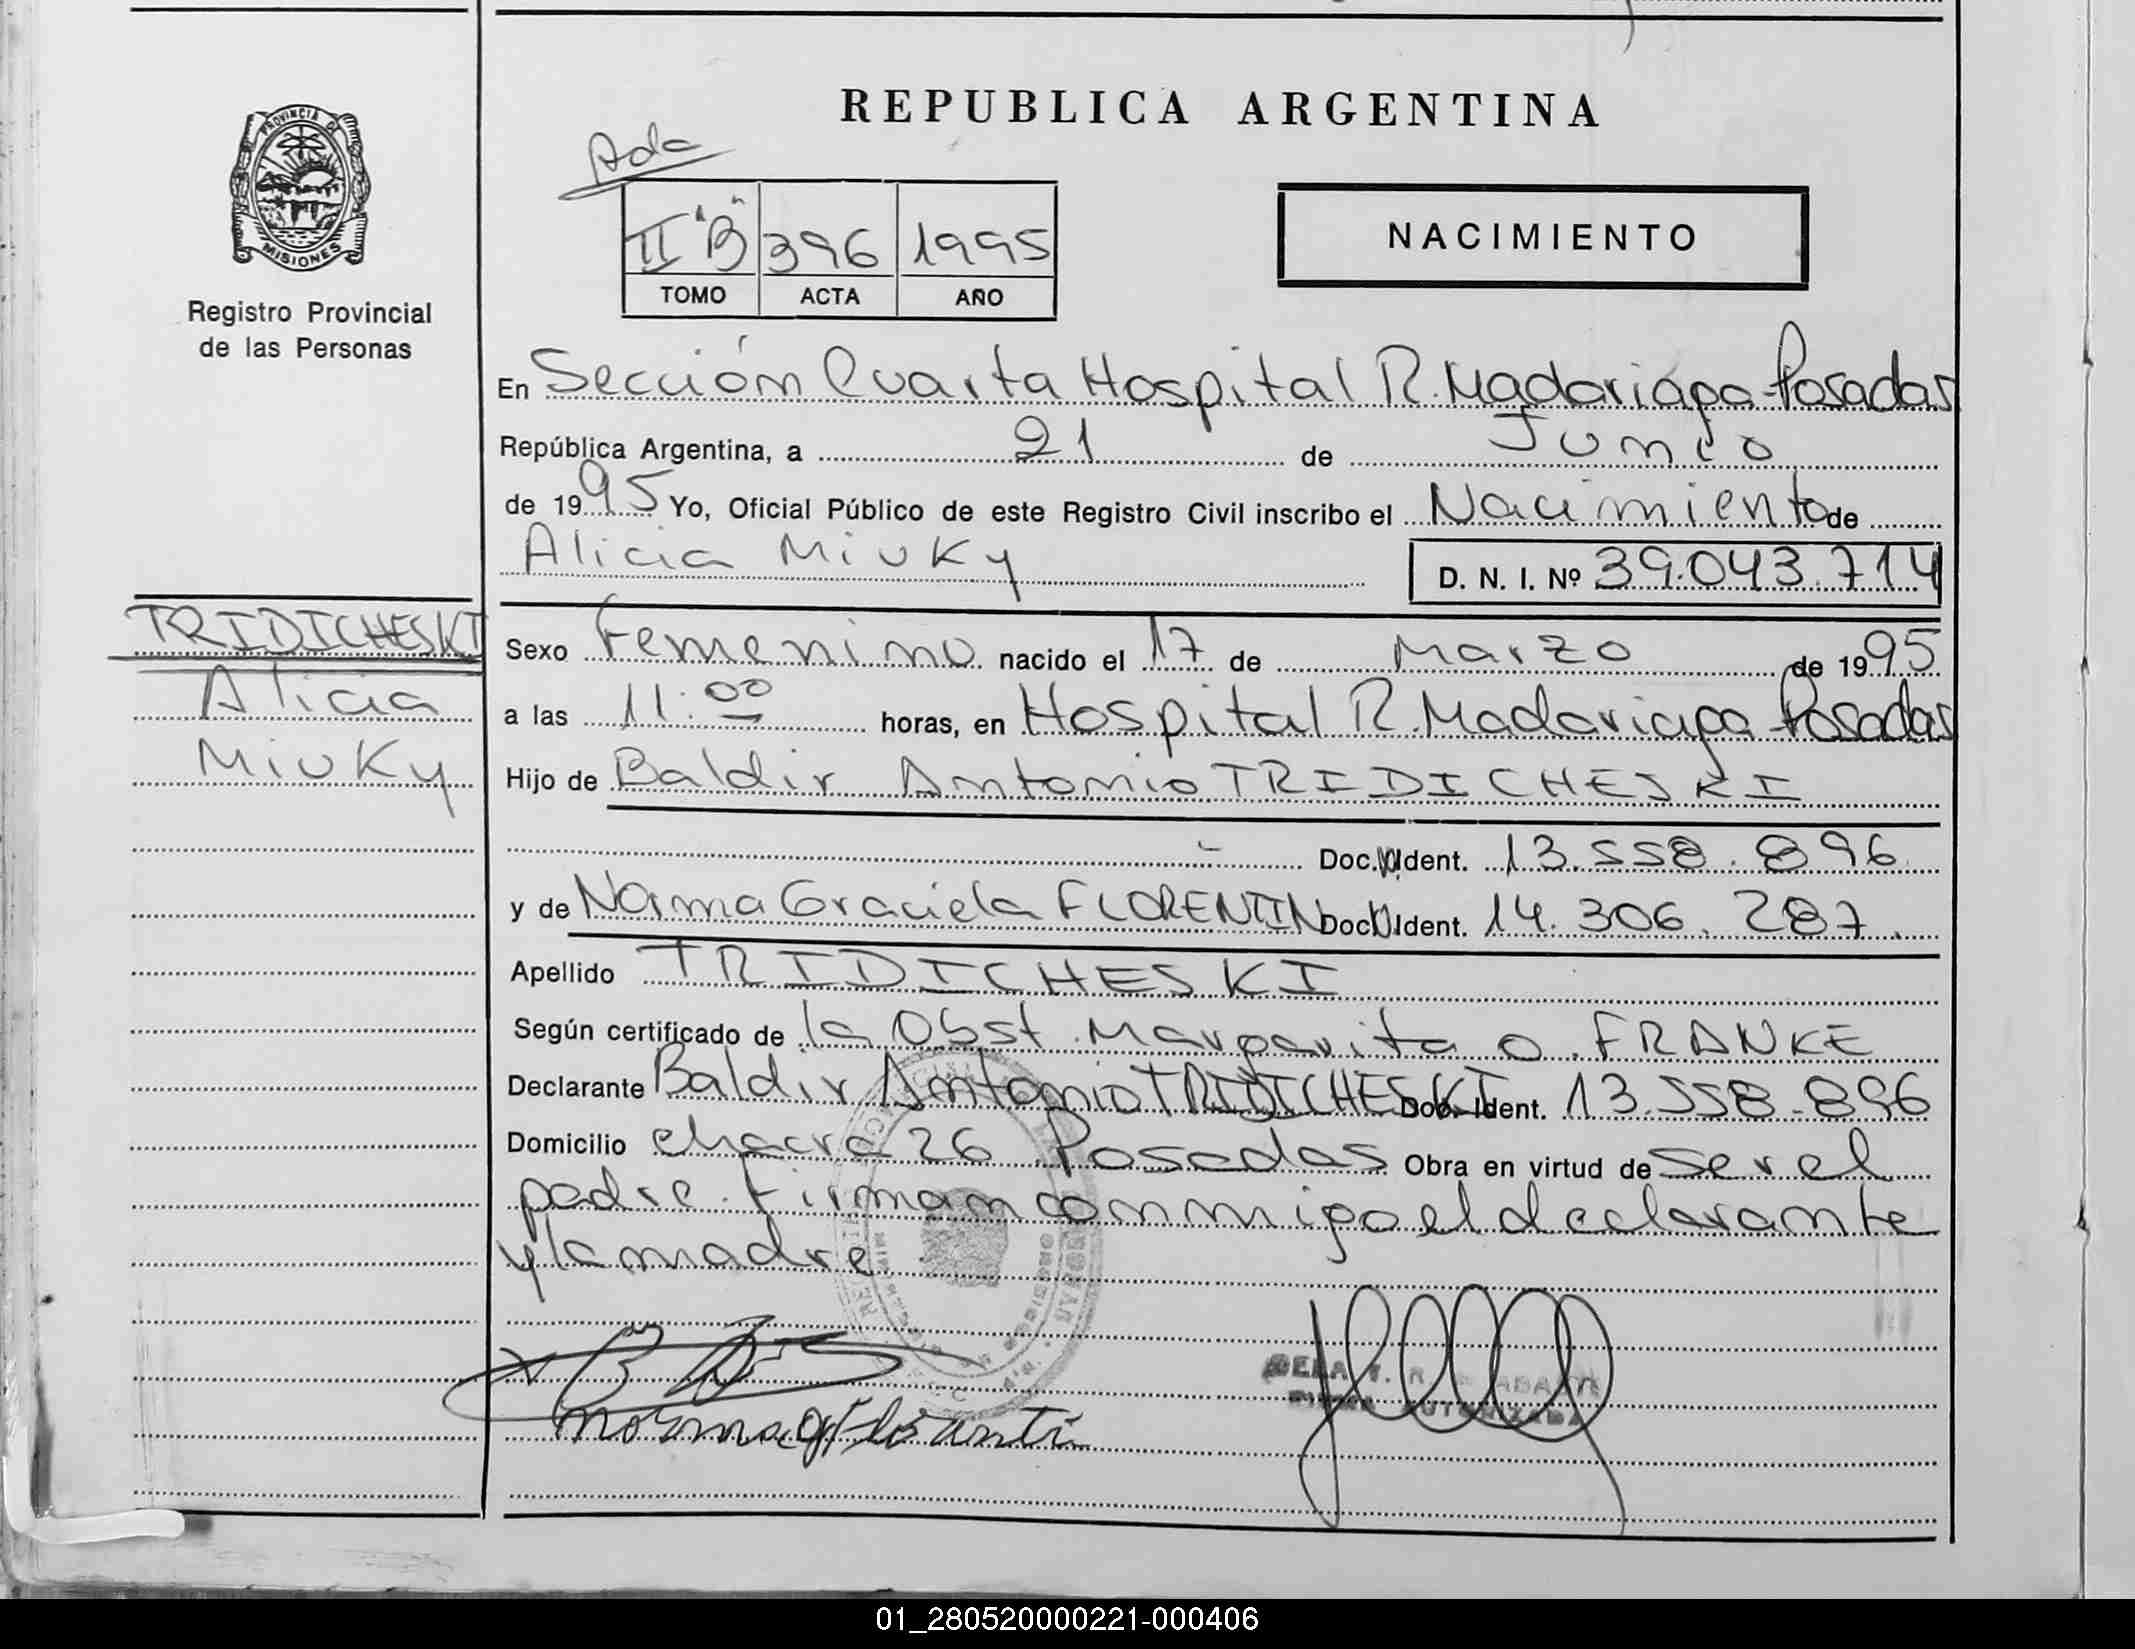 REPUBLICA ARGENTINA
Ada
II "B" 396 1995
TOMO ACTA AÑO
NACIMIENTO
PROVINCIA DE
MISIONES
Registro Provincial
de las Personas
En Sección Cuarta Hospital R. Madariaga-Posadas
República Argentina, a 21 de Junio
de 1995 Yo, Oficial Público de este Registro Civil inscribo el Nacimiento de
Alicia Miuky D. N. I. Nº 39.043.714
TRIDICHESKI
Alicia
Miuky
Sexo Femenino nacido el 17 de Marzo de 1995
a las 11:00 horas, en Hospital R. Madariaga-Posadas
Hijo de Baldir Antonio TRIDICHESKI
Doc. Ident. 13.558.896
y de Norma Graciela FLORENTIN Doc. Ident. 14.306.287.
Apellido TRIDICHESKI
Según certificado de la Obst. Margarita O. FRANKE
Declarante Baldir Antonio TRIDICHESKI Doc. Ident. 13.558.896
Domicilio chacra 26 Posadas Obra en virtud de ser el
padre. Firman conmigo el declarante
y la madre
01_280520000221-000406